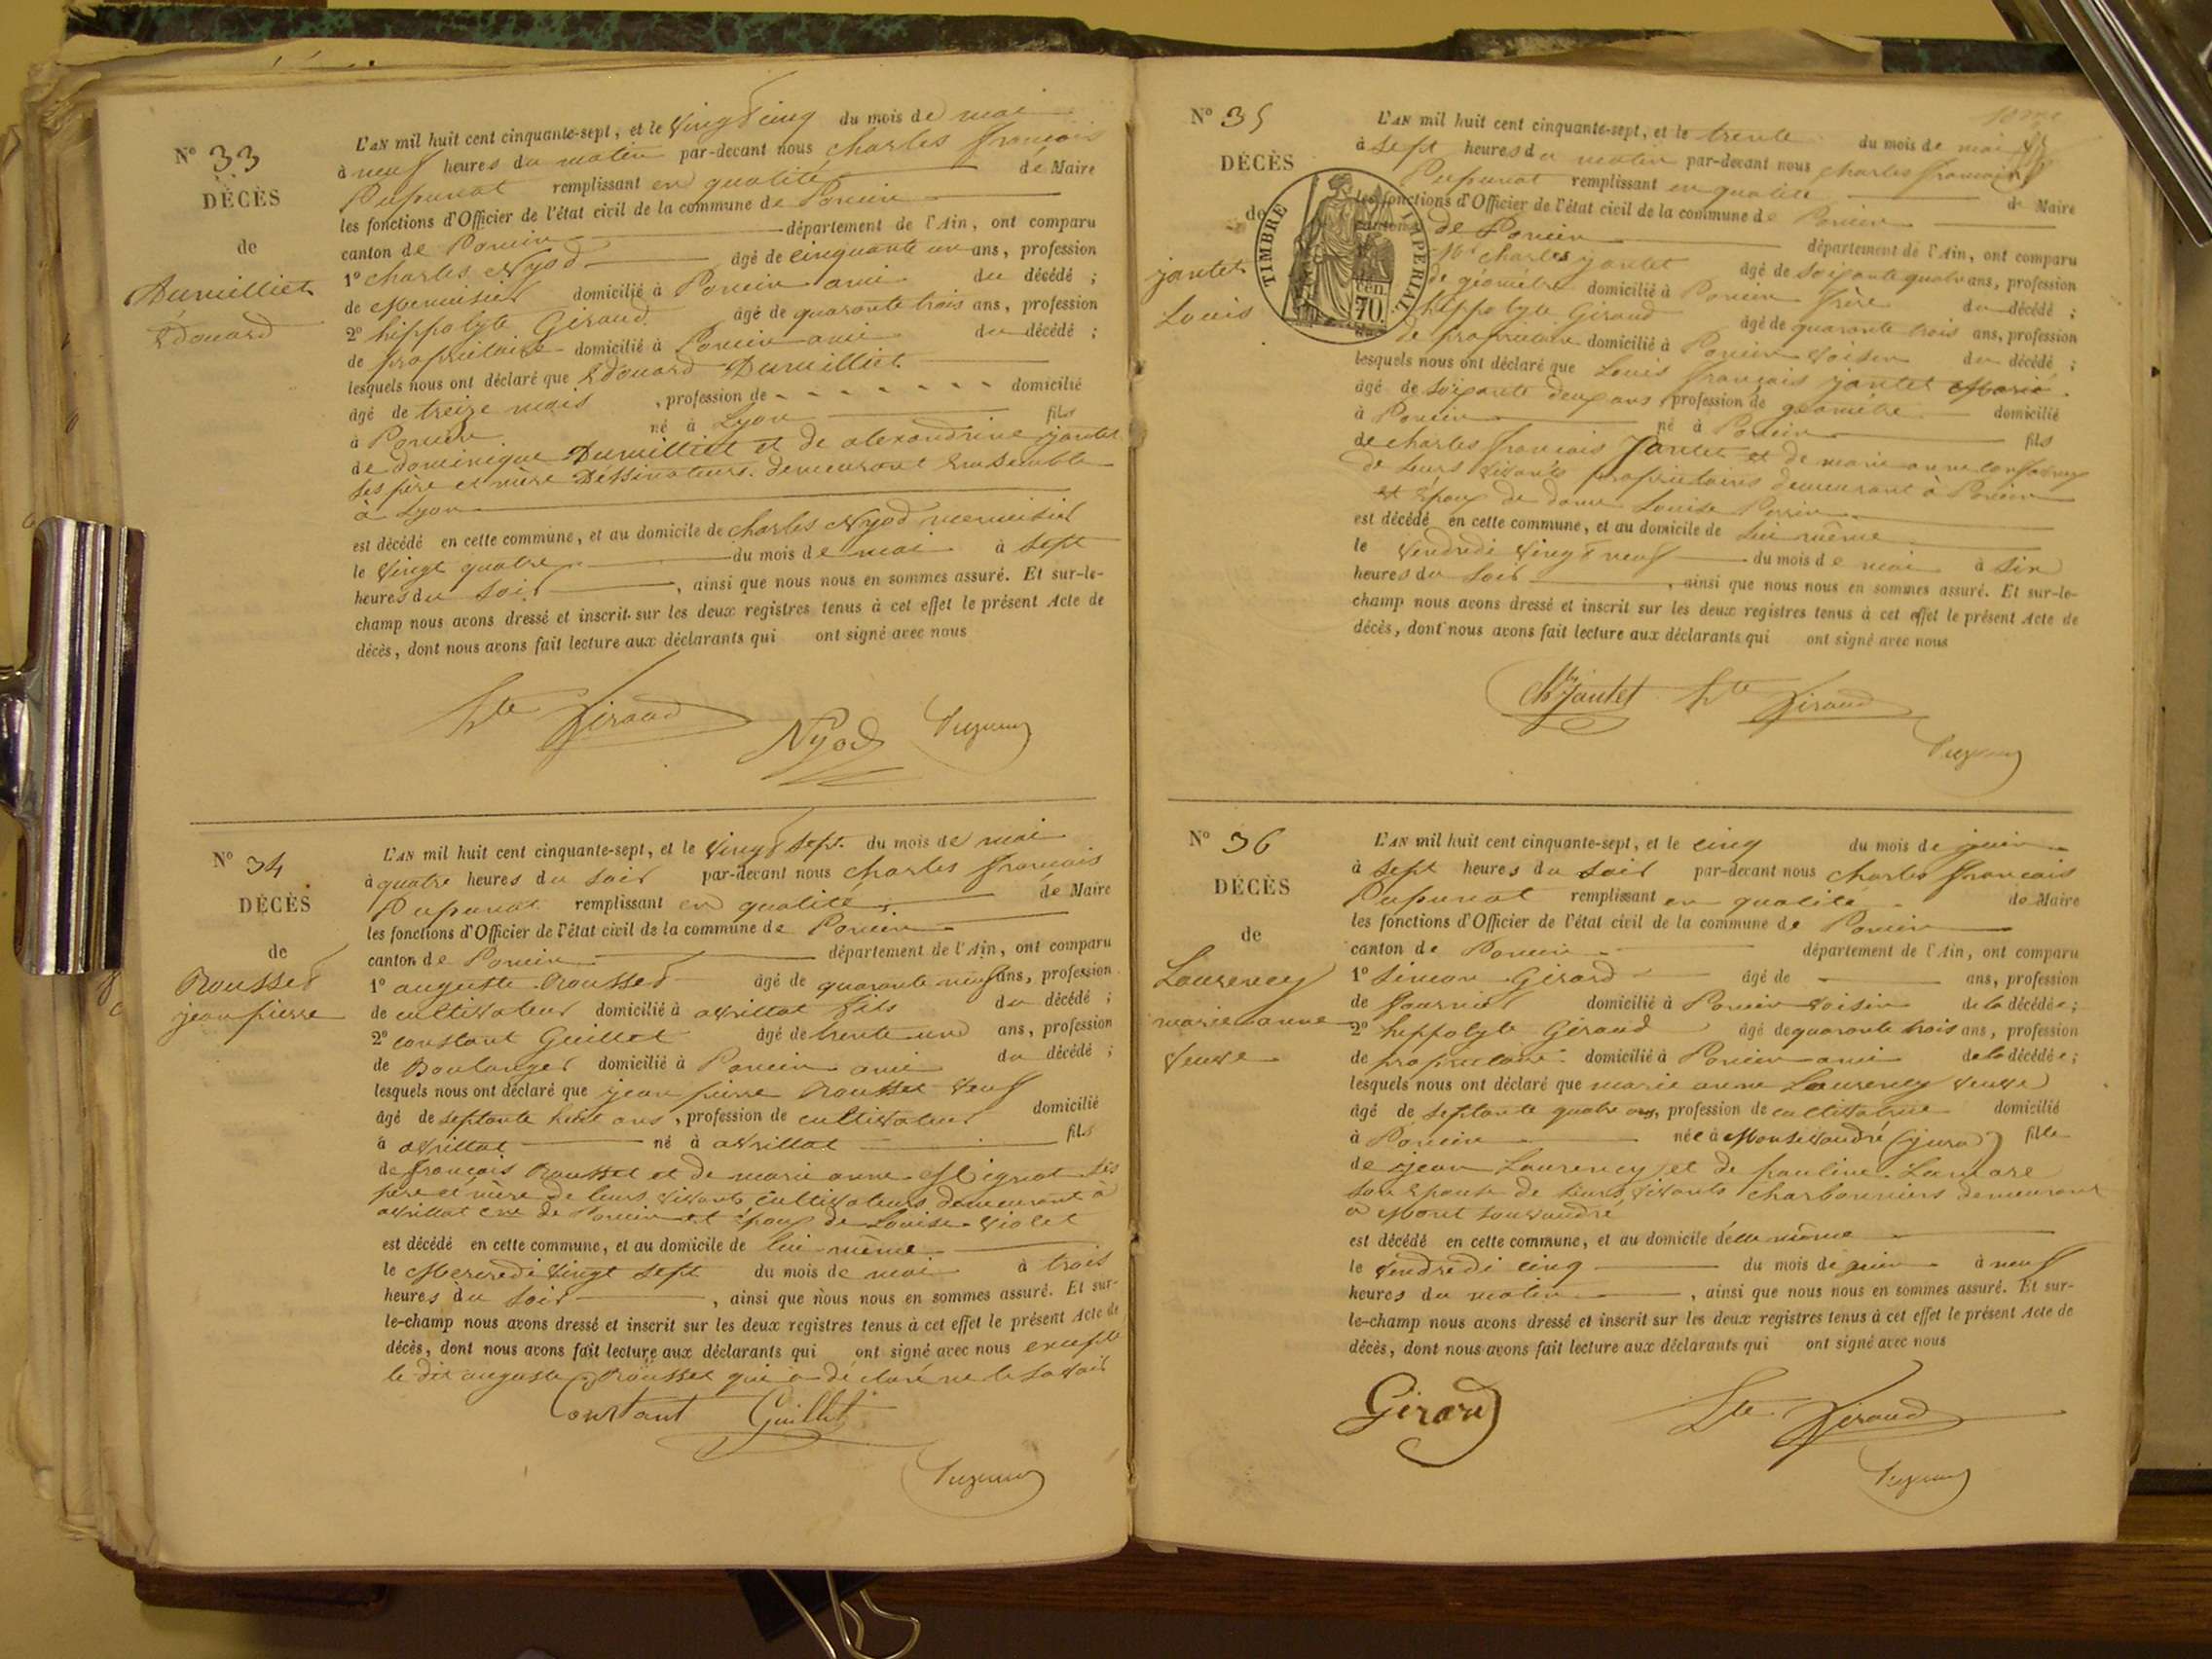 N° 33
DÉCÈS
de
Dumilliet
Edouard
L'AN mil huit cent cinquante-sept, et le vingt cinq du mois de mai
à neuf heures du matin par-devant nous Charles François
Pupunat remplissant en qualité de Maire
les fonctions d'Officier de l'état civil de la commune de Poncin
canton de Poncin département de l'Ain, ont comparu
1° Charles Nyod âgé de cinquante un ans, profession
de Menuisier domicilié à Poncin ami du décédé ;
2° hippolyte Giraud âgé de quarante trois ans, profession
de propriétaire domicilié à Poncin ami du décédé ;
lesquels nous ont déclaré que Edouard Dumilliet
âgé de treize mois , profession de - - - - - - - domicilié
à Poncin né à Lyon fils
de dominique Dumilliet et de alexandrine jantet
ses père et mère Déssinateurs demeurant Ensemble
à Lyon
est décédé en cette commune, et au domicile de Charles Nyod menuisier
le vingt quatre du mois de mai à sept
heures du soir , ainsi que nous nous en sommes assuré. Et sur-le-
champ nous avons dressé et inscrit sur les deux registres tenus à cet effet le présent Acte de
décès, dont nous avons fait lecture aux déclarants qui ont signé avec nous
Hte Giraud Nyod Pupunat
N° 34
DÉCÈS
de
Rousset
jean pierre
L'AN mil huit cent cinquante-sept, et le vingt sept du mois de mai
à quatre heures du soir par-devant nous Charles François
Pupunat remplissant en qualité de Maire
les fonctions d'Officier de l'état civil de la commune de Poncin
canton de Poncin département de l'Ain, ont comparu
1° auguste Rousset âgé de quarante neuf ans, profession
de cultivateur domicilié à avrillat fils du décédé ;
2° constant Guillet âgé de trente un ans, profession
de Boulanger domicilié à Poncin ami du décédé ;
lesquels nous ont déclaré que jean pierre Rousset veuf
âgé de septante huit ans, profession de cultivateur domicilié
à avrillat né à avrillat fils
de françois Rousset et de marie anne Mignot ses
père et mère de leurs vivants cultivateurs demeurant à
avrillat cne de Poncin et époux de Louise Violet
est décédé en cette commune, et au domicile de lui même
le Mercredi vingt sept du mois de mai à trois
heures du soir , ainsi que nous nous en sommes assuré. Et sur-
le-champ nous avons dressé et inscrit sur les deux registres tenus à cet effet le présent Acte de
décès, dont nous avons fait lecture aux déclarants qui ont signé avec nous excepté
le dit auguste Rousset qui a déclaré ne le savoir
Constant Guillet
Pupunat
N° 35
DÉCÈS
de
jantet
Louis
TIMBRE IMPÉRIAL
70.
L'AN mil huit cent cinquante-sept, et le trente du mois de mai
à sept heures du matin par-devant nous Charles françois
Pupunat remplissant en qualité de Maire
les fonctions d'Officier de l'état civil de la commune de Poncin
canton de Poncin département de l'Ain, ont comparu
Charles jantet âgé de soixante quatre ans, profession
de géomètre domicilié à Poncin frère du décédé ;
hippolyte Giraud âgé de quarante trois ans, profession
de propriétaire domicilié à Poncin voisin du décédé ;
lesquels nous ont déclaré que Louis françois jantet Marié
âgé de soixante deux ans, profession de géomètre domicilié
à Poncin né à Poncin fils
de charles françois Jantet et de marie anne
de leurs vivants propriétaires demeurant à Poncin
et époux de dame Louise Perrin
est décédé en cette commune, et au domicile de lui même
le vendredi vingt neuf du mois de mai à six
heures du soir , ainsi que nous nous en sommes assuré. Et sur-le-
champ nous avons dressé et inscrit sur les deux registres tenus à cet effet le présent Acte de
décès, dont nous avons fait lecture aux déclarants qui ont signé avec nous
Ch Jantet Hte Giraud
Pupunat
N° 36
DÉCÈS
de
Laurency
marie anne
veuve
L'AN mil huit cent cinquante-sept, et le cinq du mois de juin
à sept heures du soir par-devant nous Charles François
Pupunat remplissant en qualité de Maire
les fonctions d'Officier de l'état civil de la commune de Poncin
canton de Poncin département de l'Ain, ont comparu
1° Simon Girard âgé de ans, profession
de fournier domicilié à Poncin voisin de la décédée ;
2° hippolyte Giraud âgé de quarante trois ans, profession
de propriétaire domicilié à Poncin ami de la décédée ;
lesquels nous ont déclaré que marie anne Laurency veuve
âgé de septante quatre ans, profession de cultivatrice domicilié
à Poncin née à (jura) fille
de jean Laurency et de pauline Lamare
son épouse de leurs vivants charbonniers demeurant
à
est décédé en cette commune, et au domicile d'elle même
le vendredi cinq du mois de juin à neuf
heures du matin , ainsi que nous nous en sommes assuré. Et sur-
le-champ nous avons dressé et inscrit sur les deux registres tenus à cet effet le présent Acte de
décès, dont nous avons fait lecture aux déclarants qui ont signé avec nous
Girard Hte Giraud
Pupunat